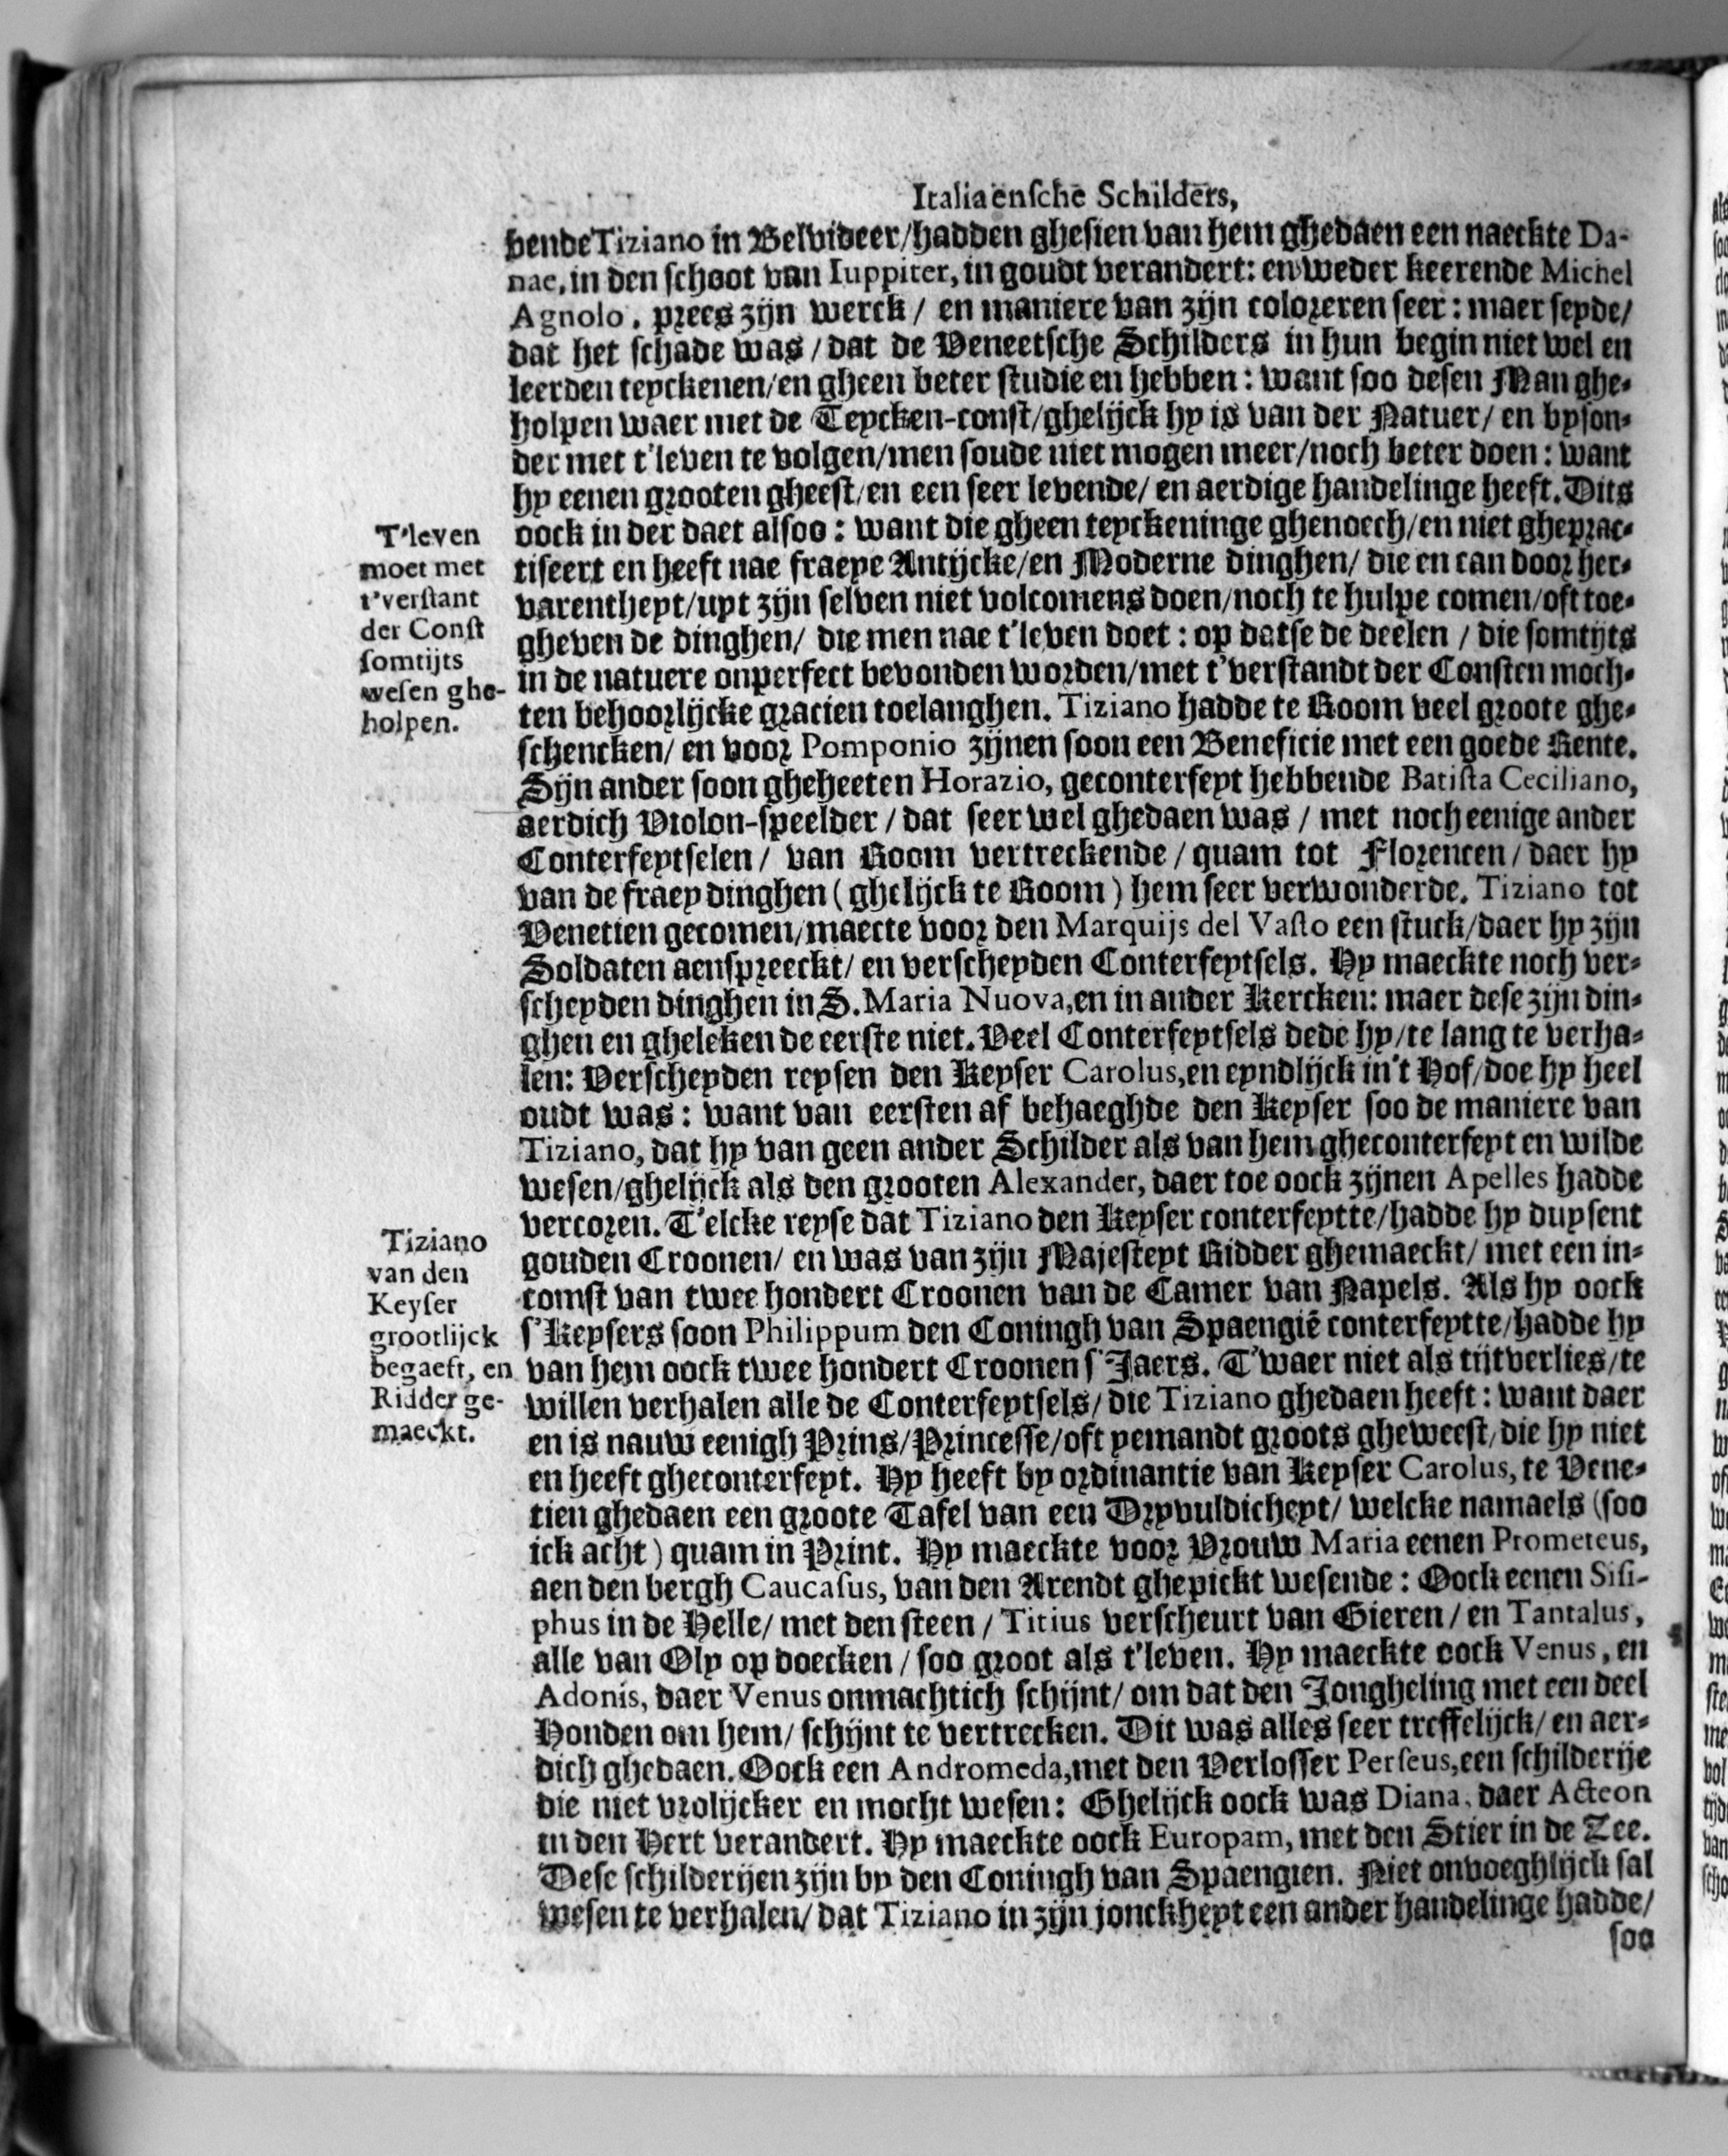 Italiaensche Schilders,
bende Tiziano in Belvideer/hadden ghesien van hem ghedaen een naeckte Da-
nae, in den schoot van Iuppiter, in goudt verandert: en weder keerende Michel
Agnolo, prees zijn werck/ en maniere van zijn coloreren seer: maer seyde/
dat het schade was/dat de Veneetsche Schilders in hun begin niet wel en
leerden teyckenen/en gheen beter studie en hebben: want soo desen Man ghe-
holpen waer met de Teycken-const/ghelijck hy is van der Natuer/ en byson-
der met t'leven te volgen/men soude niet mogen meer/noch beter doen: want
hy eenen grooten gheest/en een seer levende/ en aerdige handelinge heeft. Dits
oock in der daet alsoo: want die gheen teyckeninge ghenoech/en niet gheprac-
tiseert en heeft nae fraeye Antijcke/en Moderne dinghen/ die en can door her-
varentheyt/uyt zijn selven niet volcomens doen/noch te hulpe comen/oft toe-
gheven de dinghen/ die men nae t'leven doet: op datse de deelen/ die somtijts
in de natuere onperfect bevonden worden/met t'verstandt der Consten moch-
ten behoorlijcke gracien toelanghen. Tiziano hadde te Room veel groote ghe-
schencken/ en voor Pomponio zijnen soon een Beneficie met een goede Rente.
Sijn ander soon gheheeten Horazio, geconterfeyt hebbende Batista Ceciliano,
aerdich Violon-speelder/dat seer wel ghedaen was/ met noch eenige ander
Conterfeytselen/ van Room vertreckende/quam tot Florencen/daer hy
van de fraey dinghen (ghelijck te Room) hem seer verwonderde. Tiziano tot
Venetien gecomen/maecte voor den Marquijs del Vasto een stuck/daer hy zijn
Soldaten aenspreeckt/ en verscheyden Conterfeytsels. Hy maeckte noch ver-
scheyden dinghen in S. Maria Nuova, en in ander Kercken: maer dese zijn din-
ghen en gheleken de eerste niet. Veel Conterfeytsels dede hy/te lang te verha-
len: Verscheyden reysen den Keyser Carolus, en eyndlijck in't Hof/doe hy heel
oudt was: want van eersten af behaeghde den Keyser soo de maniere van
Tiziano, dat hy van geen ander Schilder als van hem gheconterfeyt en wilde
wesen/ghelijck als den grooten Alexander, daer toe oock zijnen Apelles hadde
vercoren. T'elcke reyse dat Tiziano den Keyser conterfeytte/hadde hy duysent
gouden Croonen/ en was van zijn Majesteyt Ridder ghemaeckt/ met een in-
comst van twee hondert Croonen van de Camer van Napels. Als hy oock
s'Keysers soon Philippum den Coningh van Spaengiē conterfeytte/hadde hy
van hem oock twee hondert Croonen s'Jaers. T'waer niet als tijtverlies/te
willen verhalen alle de Conterfeytsels/die Tiziano ghedaen heeft: want daer
en is nauw eenigh Prins/Princesse/oft yemandt groots gheweest/die hy niet
en heeft gheconterfeyt. Hy heeft by ordinantie van Keyser Carolus, te Vene-
tien ghedaen een groote Tafel van een Dryvuldicheyt/ welcke namaels (soo
ick acht) quam in Print. Hy maeckte voor Vrouw Maria eenen Prometeus,
aen den bergh Caucasus, van den Arendt ghepickt wesende: Oock eenen Sisi-
phus in de Helle/ met den steen/ Titius verscheurt van Gieren/ en Tantalus,
alle van Oly op doecken/soo groot als t'leven. Hy maeckte oock Venus, en
Adonis, daer Venus onmachtich schijnt/ om dat den Jongheling met een deel
Honden om hem/ schijnt te vertrecken. Dit was alles seer treffelijck/ en aer-
dich ghedaen. Oock een Andromeda, met den Verlosser Perseus, een schilderije
die niet vrolijcker en mocht wesen: Ghelijck oock was Diana, daer Acteon
in den Hert verandert. Hy maeckte oock Europam, met den Stier in de Zee.
Dese schilderijen zijn by den Coningh van Spaengien. Niet onvoeghlijck sal
wesen te verhalen/ dat Tiziano in zijn jonckheyt een ander handelinge hadde/
soo
T'leven
moet met
t'verstant
der Const
somtijts
wesen ghe-
holpen.
Tiziano
van den
Keyser
grootlijck
begaeft, en
Ridder ge-
maeckt.